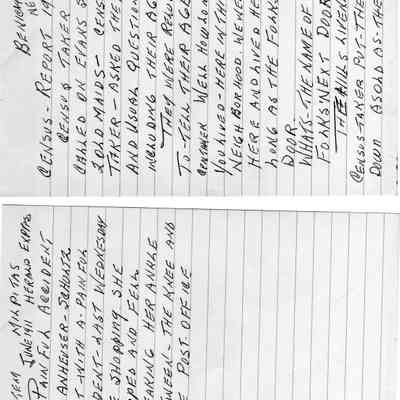 BENICIA
NE
CENSUS - REPORT 19
CENSUS TAKER
CALLED ON EVANS S
2 OLD MAIDS - CENSU
TAKER - ASKED THE
AND USUAL QUESTION
INCLUDING THEIR AG
THEY WERE RELUC
TO TELL THEIR AGE
CENTAKER WELL HOW LON
YOU LIVED - HERE IN THI
NEIGHBORHOOD. WE WER
HERE AND LIVED HE
LONG AS THE FOLKS
DOOR
WHATS - THE NAME OF
FOLKS NEXT DOOR
THE HILLS
CENSUS TAKER PUT - THE
DOWN AS OLD AS - THE
ITEM MILPITAS
JUNE 1411 HERALD EXPRES
PAINFUL ACCIDENT
ANHEUSER - SCHULTZ
T - WITH A - PAINFUL
DENT - LAST WEDNESDAY
E SHOPPING SHE
PED AND FELL
EARING HER ANKLE
WEEN - THE KNEE AND
E POST OFFICE